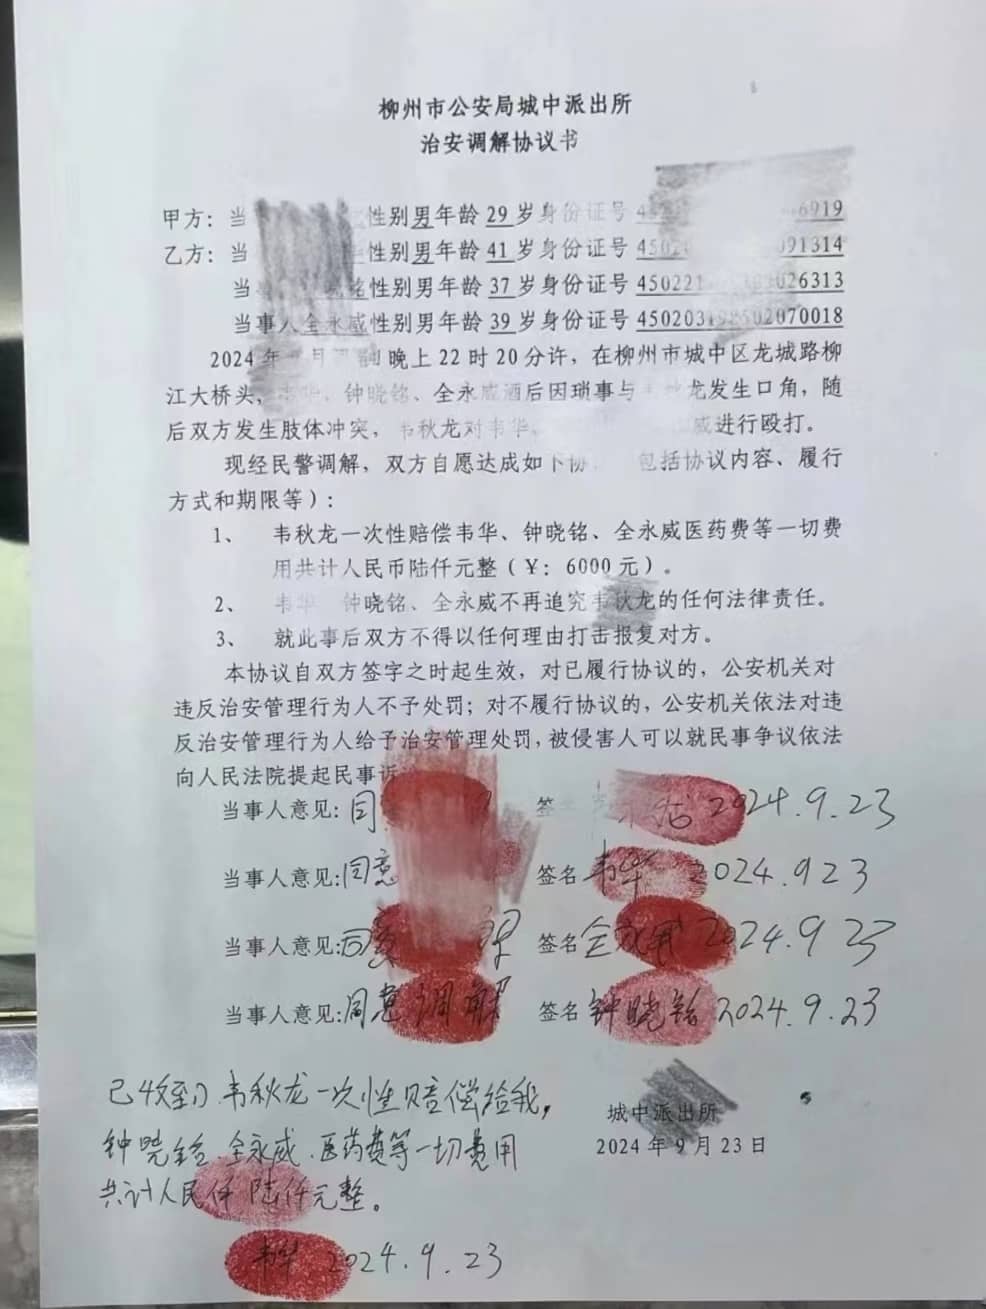 柳州市公安局城中派出所
治安调解协议书
甲方：当 性别男年龄 29 岁身份证号 4 6919
乙方：当 性别男年龄 41 岁身份证号 4502 091314
当 铭性别男年龄 37 岁身份证号 450221 026313
当事人全永威性别男年龄 39 岁身份证号 450203198502070018
2024 年 月 晚上 22 时 20 分许，在柳州市城中区龙城路柳
江大桥头， 钟晓铭、全永威酒后因琐事与韦秋龙发生口角，随
后双方发生肢体冲突，韦秋龙对韦华、 威进行殴打。
现经民警调解，双方自愿达成如下协 包括协议内容、履行
方式和期限等）：
1、 韦秋龙一次性赔偿韦华、钟晓铭、全永威医药费等一切费
用共计人民币陆仟元整（￥：6000 元）。
2、 韦华 钟晓铭、全永威不再追究韦秋龙的任何法律责任。
3、 就此事后双方不得以任何理由打击报复对方。
本协议自双方签字之时起生效，对已履行协议的，公安机关对
违反治安管理行为人不予处罚；对不履行协议的，公安机关依法对违
反治安管理行为人给予治安管理处罚，被侵害人可以就民事争议依法
向人民法院提起民事诉
当事人意见：同 签 2024.9.23
当事人意见：同意 签名 韦华 2024.9 23
当事人意见：同意 签名 全永威 2024.9 23
当事人意见：同意调解 签名 钟晓铭 2024.9.23
已收到韦秋龙一次性赔偿给我，
钟晓铭 全永威 医药费等一切费用
共计人民币陆仟元整。
韦华 2024.9.23
城中派出所
2024 年 9 月 23 日